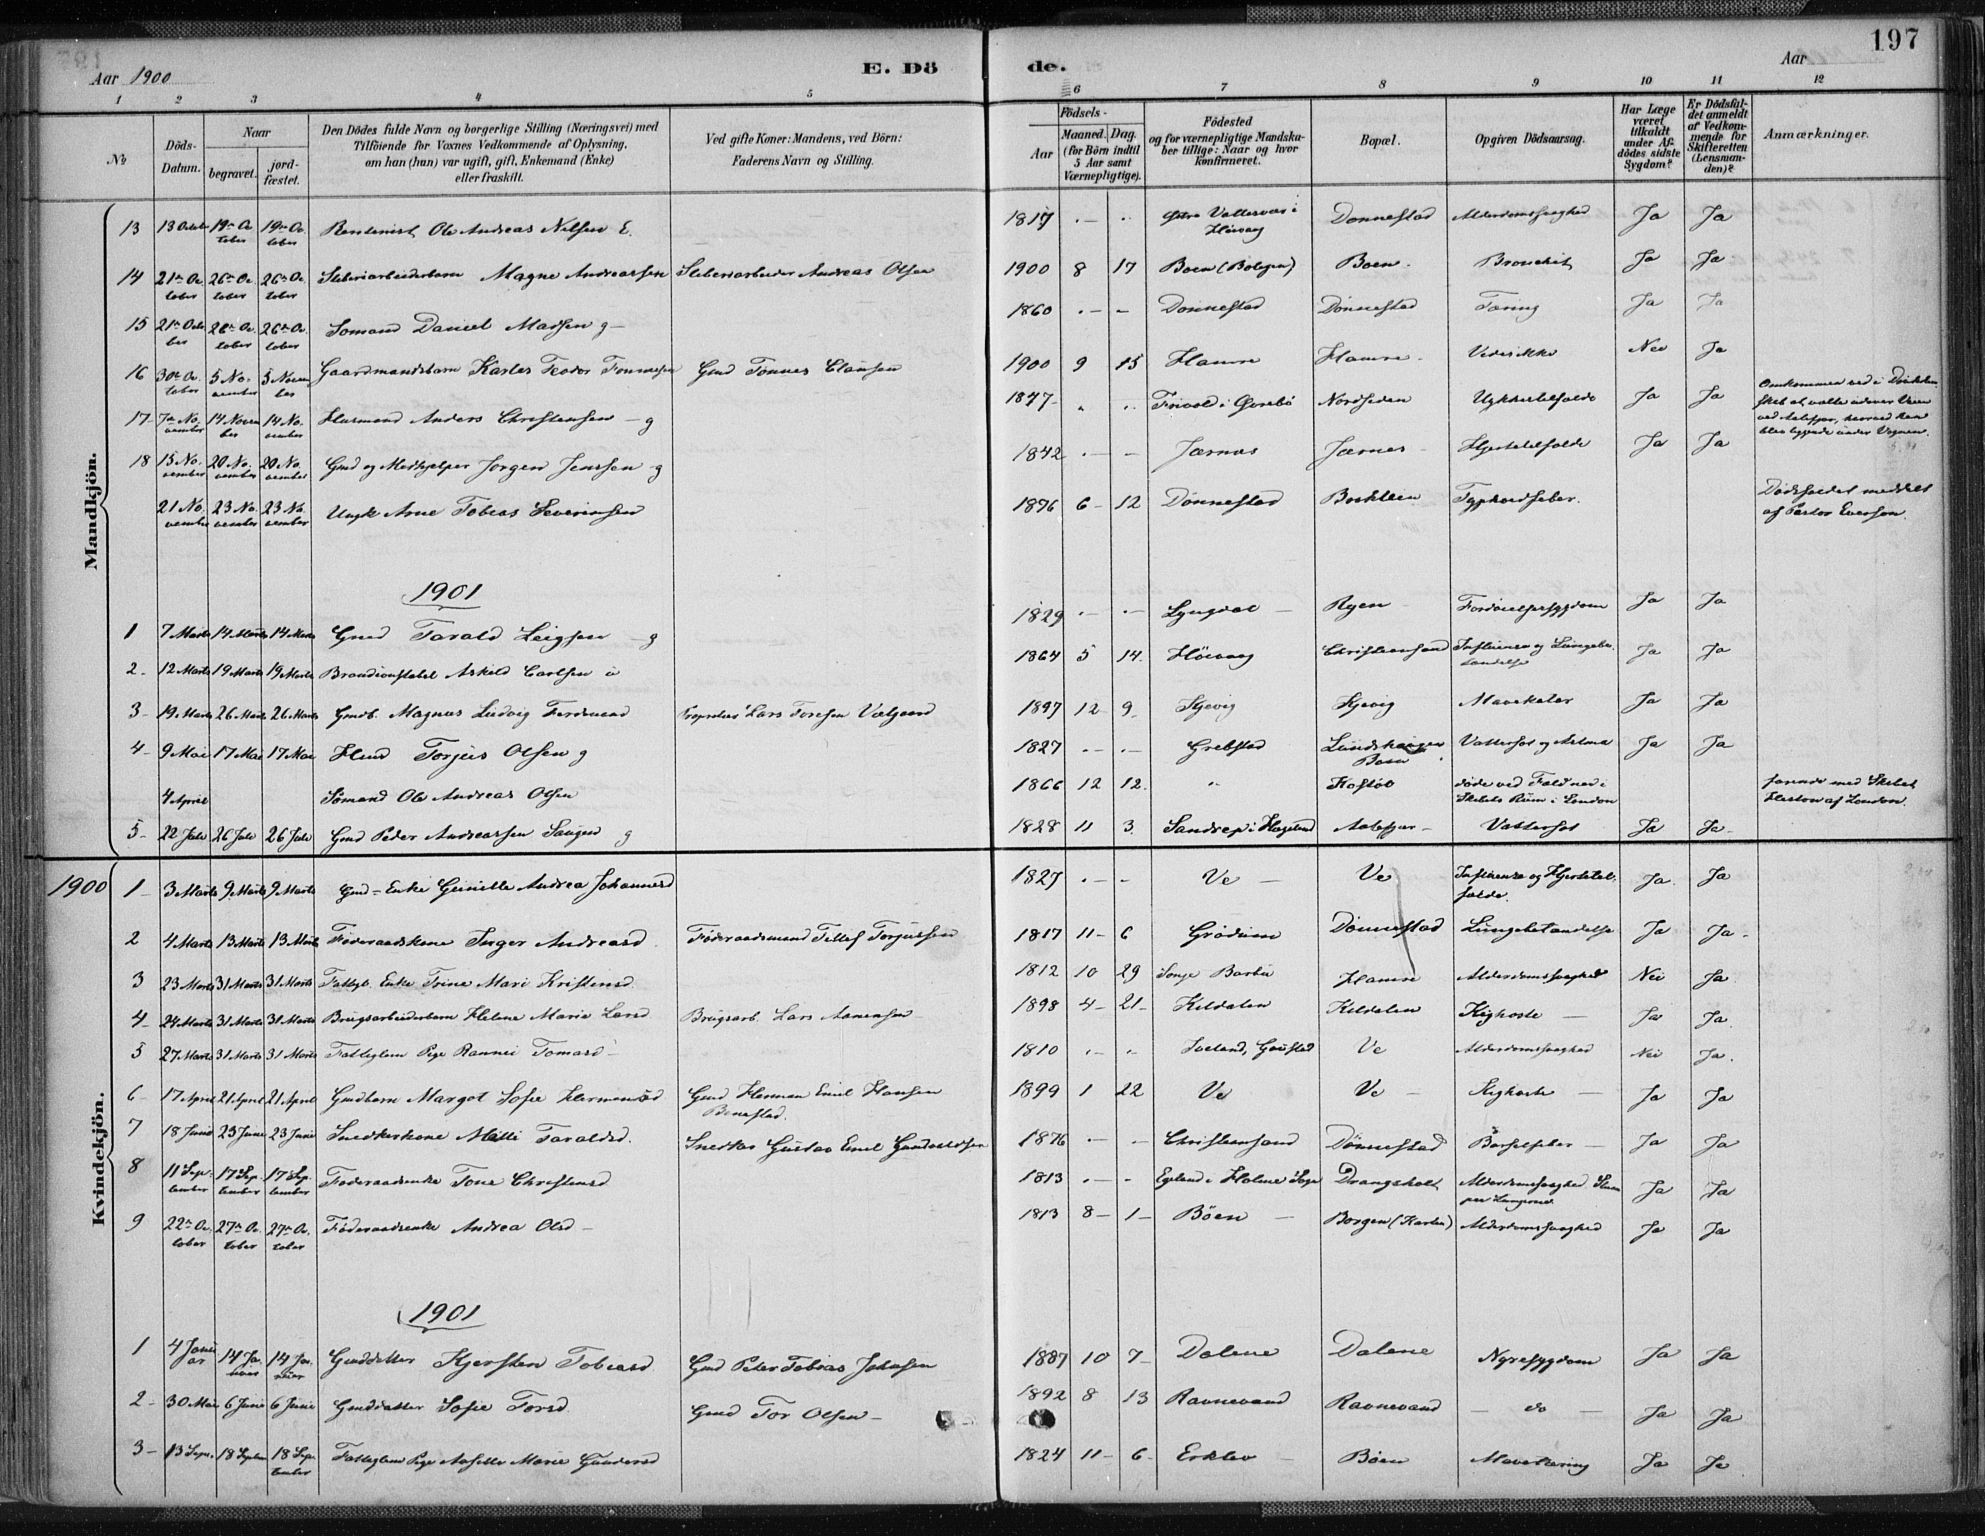 197
Aar 1900
E. Dö
de.
Aar
1 2 3 4 5 6 7 8 9 10 11 12
No
Döds-Datum.
Naar
begravet.
jord-fæstet.
Den Dödes fulde Navn og borgerlige Stilling (Næringsvei) med
Tilföiende for Voxnes Vedkommende af Oplysning,
om han (hun) var ugift, gift, Enkemand (Enke)
eller fraskilt.
Ved gifte Koner: Mandens, ved Börn:
Faderens Navn og Stilling.
Födsels-
Aar
Maaned. Dag.
(for Börn indtil
5 Aar samt
Værnepligtige).
Födested
og for værnepligtige Mandska-
ber tillige: Naar og hvor
konfirmeret.
Bopæl.
Opgiven Dödsaarsag.
Har Læge
været
tilkaldt
under Af-
dödes sidste
Sygdom?
Er Dödsfal-
det anmeldt
af Vedkom-
mende for
Skifteretten
(Lensman-
den)?
Anmærkninger.
Mandkjön.
13 13 Octob 19de October 19de October Rentenist Ole Andreas Nilsen E. 1817 Vallesvær i Høivaag Dønnestad Alderdomssvaghed Ja Ja
14 21de October 26de October 26de October Sliberiarbeiderbarn Magne Andreassen Sliberiarbeider Andreas Olsen 1900 8 17 Boen (Boligen) Boen Bronchit Ja Ja
15 21de October 26de October 26de October Sømand Daniel Madsen g 1860 Dønnestad Dønnestad Tæring Ja Ja
16 30de October 5 November 5 November Gaardmandsbarn Karles Teodor Tønnesen Gmd Tønnes Clausen 1900 9 15 Hamre Hamre Vides ikke Nei Ja
17 7de November 14 November 14 November Husmand Anders Christensen g 1847 Frivold i Øvrebø Nordsiden Ulykkestilfælde Ja Ja
18 15 November 20 November 20 November Gmd og Medhjelper Jørgen Jenssen g 1842 Jærnes Jærnes Hjertetilfælde Ja Ja
21 November 23 November 23 November Ungk Arne Tobias Severinsen 1876 6 12 Dønnestad Typhoidfeber. Dødsfaldet meddelt
af Pastor Evensen.
1901
1 7 Marts 14 Marts 14 Marts Gmd Tarald g 1829 Lyngdal Ryen Fordøielsessygdom Ja Ja
2 12 Marts 19 Marts 19 Marts Brandconstabel Askild Carlsen u 1864 5 14 Høivaag Christianssand Influensa og Lungebetændelse Ja Ja
3 19 Marts 26 Marts 26 Marts Gmdb. Magnus Ludvig Ferdinand Proprietær Lars Toresen Valgaard 1897 12 9 Kjevig Kjevig Mavekatar Ja Ja
4 9 Mai 17 Mai 17 Mai Hmd Torjus Olsen g 1827 Grebstad Boen Vattersot og Astma Ja Ja
4 April Sømand Ole Andreas Olsen 1866 12 12 " Kostøl døde ved Fald ned i
Skibets Rum i London farende med Skibet
af London
5 22 Juli 26 Juli 26 Juli Gmd Peder Andreassen Saugen g 1828 11 3 Sandrep i Hægeland Aalefjær Vattersot Ja Ja
Kvindekjön.
1900 1 3 Marts 9 Marts 9 Marts Gmd-Enke Gunille Andrea Johannesd 1827 Ve Ve Influensa og Hjertetilfælde. Ja Ja
2 4 Marts 13 Marts 13 Marts Føderaadskone Inger Andreasd Føderaadsmand Tellef Torjussen 1817 11 6 Grødum Dønnestad Lungebetændelse Ja Ja
3 23 Marts 31 Marts 31 Marts Fattigl. Enke Trine Mari Kristensd 1812 10 29 Barbu Hamre Alderdomssvaghed Nei Ja
4 24 Marts 31 Marts 31 Marts Brugsarbeiderbarn Helene Marie Larsd Brugsarb. Lars Aanensen 1898 4 21 Kildalen Kildalen Kighoste Ja Ja
5 27 Marts 31 Marts 31 Marts Fattiglem Pige Rannei Tomasd 1810 Iveland, Gaustad Ve Alderdomssvaghed Nei Ja
6 17 April 21 April 21 April Gmdbarn Margot Sofie Hermansd Gmd Herman Emil Hansen
Benestad. 1899 1 22 Ve Ve Kighoste Ja Ja
7 18 Juni 23 Juni 23 Juni Snedkerkone Milli Taraldsd. Snedker Gustav Emil Gundersen 1876 Christianssand Dønnestad Barselfeber Ja Ja
8 11 September 17 September 17 September Føderaadsenke Tone Christensd 1813 Egeland i Holme Sogn Drangsholt Alderdomssvaghed Ja Ja
9 22de October 27de October 27de October Føderaadsenke Andrea Olsd 1813 8 1 Böen Borgen Alderdomssvaghed Ja Ja
1901
1 4 Januar 14 Januar 14 Januar Gmddatter Kjersten Tobiasd Gmd Peter Tobias Johnsen 1887 10 7 Dalene Dalene Nyresygdom Ja Ja
2 30 Mai 6 Juni 6 Juni Gmddatter Sofie Torsd. Gmd Tor Olsen 1892 8 13 Ravnevand Ravnevand do Ja Ja
3 13 Sept. 18 Septem 18 September Fattiglem Pige Aasille Marie Gundersd 1824 11 6 Erklev Böen Mavetæring Ja Ja